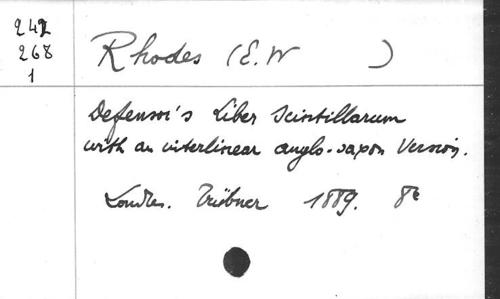 242
268
1
Rhodes (E.W )
Defensor's Liber Scintillarum
with an interlinear anglo-saxon Version.
Londres. Trübner 1889. 8º